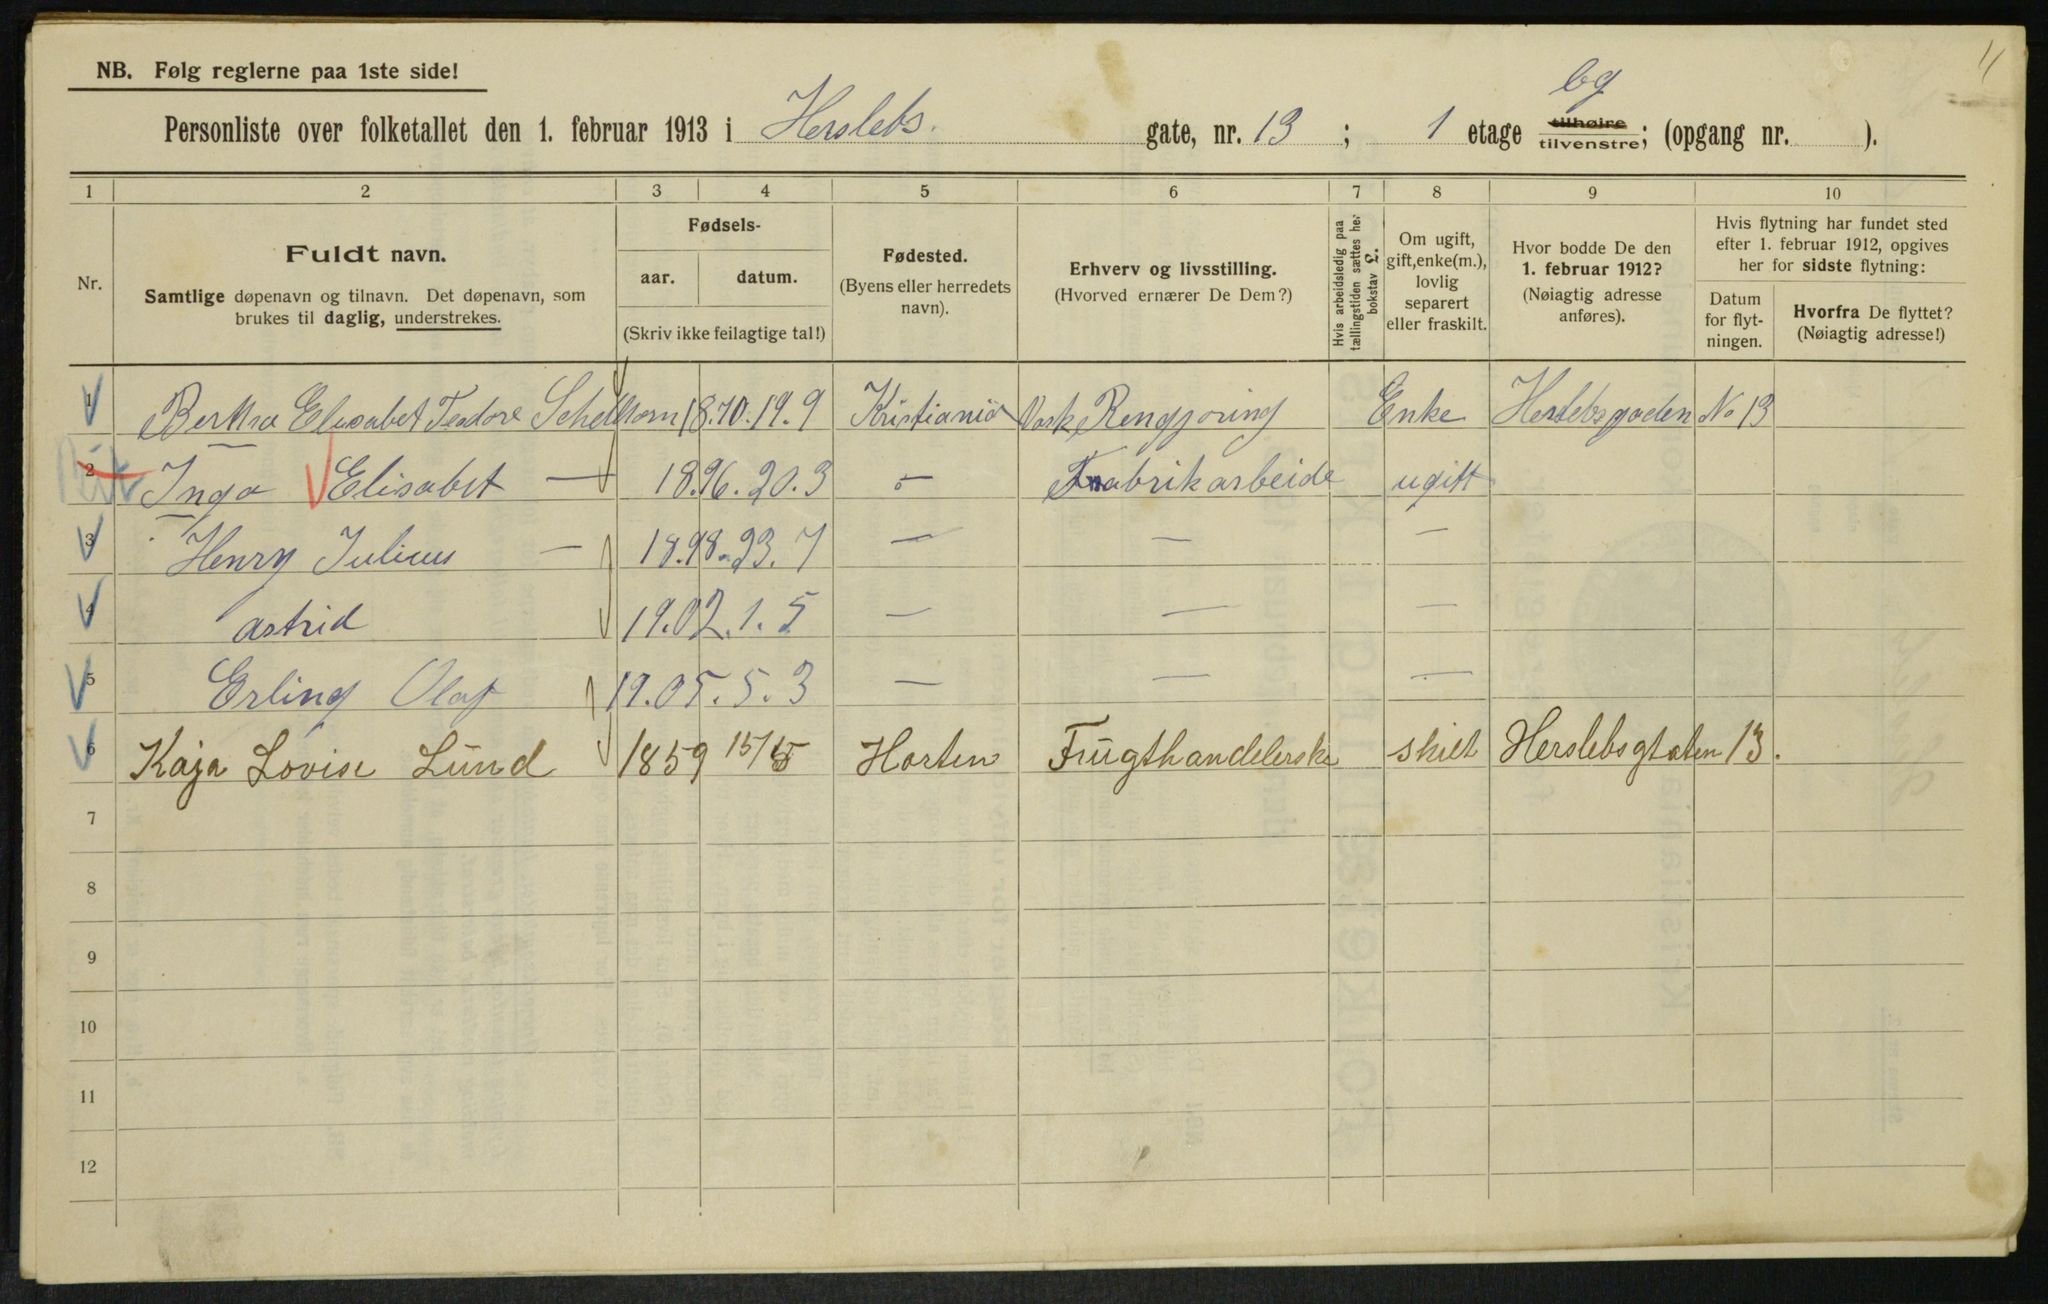 NB. Følg reglerne paa 1ste side!
4
bg
Personliste over folketallet den 1. februar 1913 i Herslebs. gate, nr. 13 ; 1 etage tilhøire tilvenstre; (opgang nr. ).
1 2 3 4 5 6 7 8 9 10
Nr.
Fuldt navn.
Samtlige døpenavn og tilnavn. Det døpenavn, som
brukes til daglig, understrekes.
Fødsels-
aar. datum.
(Skriv ikke feilagtige tal!)
Fødested.
(Byens eller herredets
navn).
Erhverv og livsstilling.
(Hvorved ernærer De Dem?)
Hvis arbeidsledig paa
tællingstiden sættes her
bokstav L.
Om ugift,
gift, enke(m.),
lovlig
separert
eller fraskilt.
Hvor bodde De den
1. februar 1912?
(Nøiagtig adresse
anføres).
Hvis flytning har fundet sted
efter 1. februar 1912, opgives
her for sidste flytning:
Datum
for flyt-
ningen.
Hvorfra De flyttet?
(Nøiagtig adresse!)
1 Bertha Elisabet Teodore Schelhorn 18.70. 19.9 Kristiania Vask Rengjøring Enke Herslebsgaden No 13
2 Inga Elisabet — 18.96. 20.3 — Fabrikarbeide ugift
3 Henry Julius — 18.98. 23.7 — — —
4 Astrid 19.02. 1.5 — — —
5 Erling Olaf 19.05. 5.3 — — —
6 Kaja Lovise Lund 1859 15/5 Horten Frugthandelerske skilt Herslebsgtaten 13.
7
8
9
10
11
12